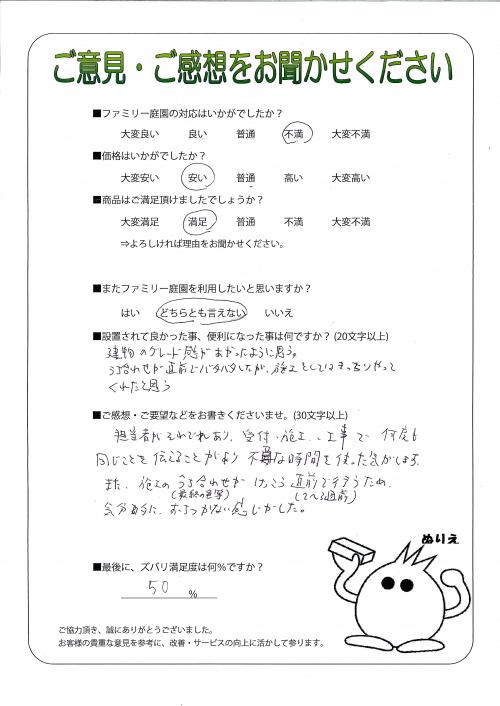 ご意見・ご感想をお聞かせください
■ファミリー庭園の対応はいかがでしたか？
大変良い 良い 普通 不満 大変不満
■価格はいかがでしたか？
大変安い 安い 普通 高い 大変高い
■商品はご満足頂けましたでしょうか？
大変満足 満足 普通 不満 大変不満
⇒よろしければ理由をお聞かせください。
■またファミリー庭園を利用したいと思いますか？
はい どちらとも言えない いいえ
■設置されて良かった事、便利になった事は何ですか？(20文字以上)
建物のグレード感があがったように思う。
うち合わせが直前でバタバタしたが、施工としてはきっちりやって
くれたと思う
■ご感想・ご要望などをお書きくださいませ。(30文字以上)
担当者がそれぞれあり、受付・施工・工事で何度も
同じことを伝えることがあり 不要な時間を使った気がします
また、施工のうち合わせが けっこう直前で行うため、
(最終の色等) (1～2週前)
気分的に、おちつかない感じがした。
ぬりえ
■最後に、ズバリ満足度は何％ですか？
50 ％
ご協力頂き、誠にありがとうございました。
お客様の貴重な意見を参考に、改善・サービスの向上に活かして参ります。